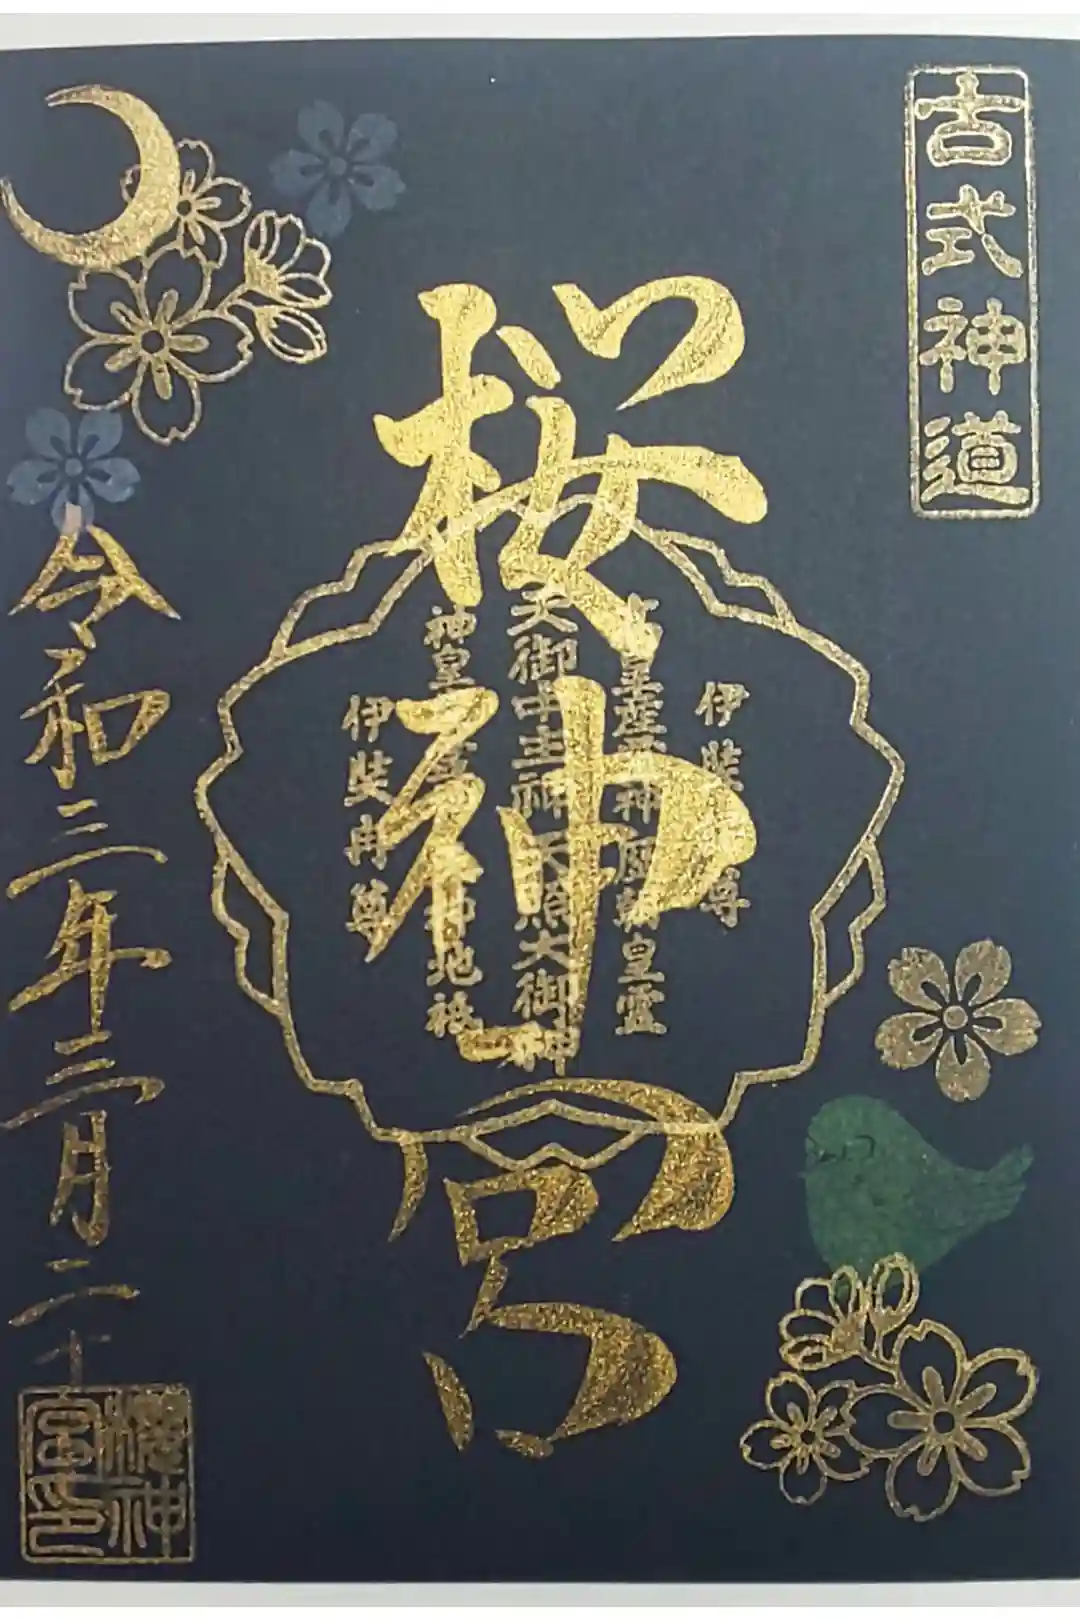 古式神道
桜神宮
伊弉諾尊
高皇産霊神歴朝皇霊
天御中主神天照大御神
神皇産霊神天神地祇
伊弉冉尊
令和三年三月二十
櫻神
宮印